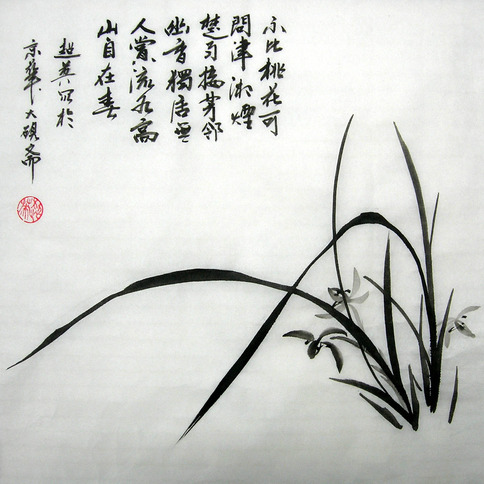 不比桃花可
問津湘煙
楚雨接芳邻
幽香獨居無
人賞流水高
山自在春
超英写於
京華大硯齋